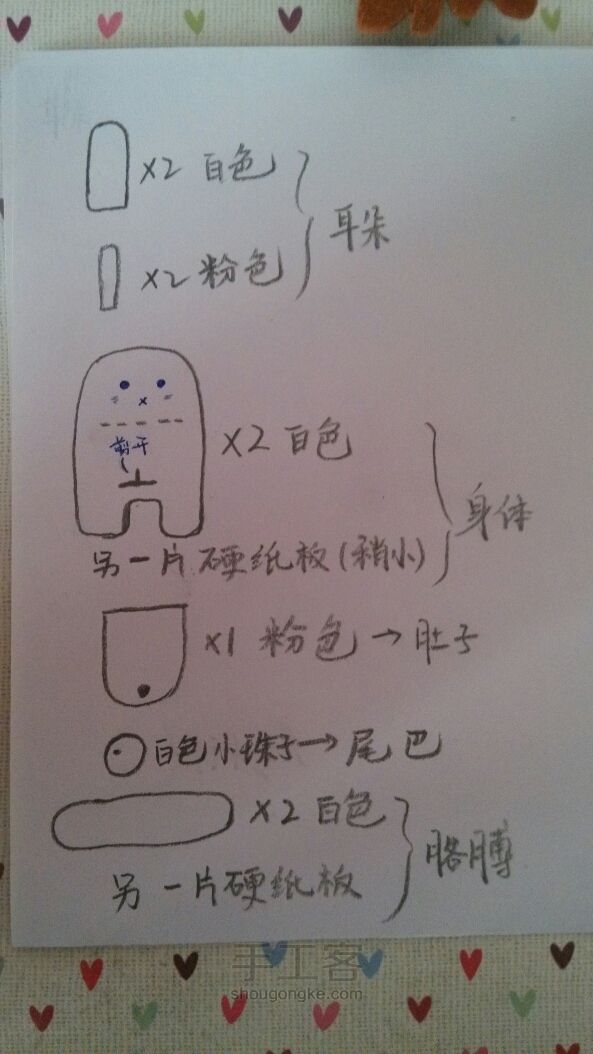 ×2 白色
×2 粉色
耳朵
剪开
×2 白色
另一片硬纸板(稍小)
身体
×1 粉色→肚子
白色小珠子→尾巴
×2 白色
另一片硬纸板
胳膊
手工客
shougongke.com